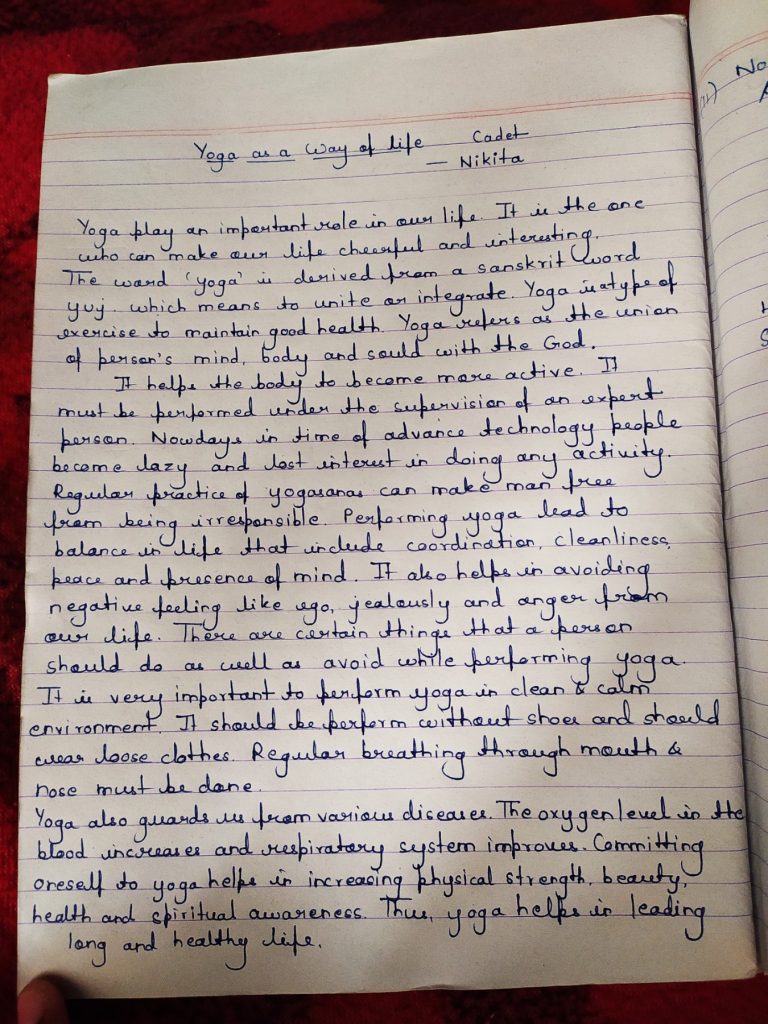 Yoga as a Way of life Cadet
— Nikita
Yoga play an important role in our life. It is the one
who can make our life cheerful and interesting.
The word 'yoga' is derived from a sanskrit word
yuj. which means to unite or integrate. Yoga is a type of
exercise to maintain good health. Yoga refers as the union
of person's mind, body and sould with the God.
It helps the body to become more active. It
must be performed under the supervision of an expert
person. Nowdays in time of advance technology people
become lazy and lost interest in doing any activity.
Regular practice of yogasanas can make man free
from being irresponsible. Performing yoga lead to
balance in life that include coordination, cleanliness,
peace and presence of mind. It also helps in avoiding
negative feeling like ego, jealously and anger from
our life. There are certain things that a person
should do as well as avoid while performing yoga.
It is very important to perform yoga in clean & calm
environment. It should be perform without shoes and should
wear loose clothes. Regular breathing through mouth &
nose must be done.
Yoga also guards us from various diseases. The oxygen level in the
blood increases and respiratory system improves. Committing
oneself to yoga helps in increasing physical strength, beauty,
health and spiritual awareness. Thus, yoga helps in leading
long and healthy life.
No